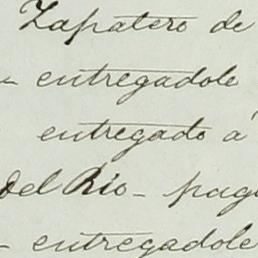 Zapatero de
entregadole
entregado á
del Rio - pag
- entregadole